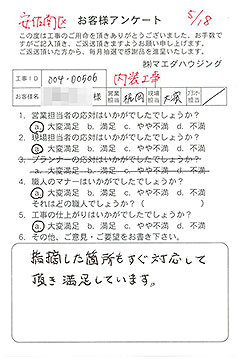 安佐南区 お客様アンケート 5/18
この度は工事のご用命を頂きありがとうございました。お手数で
すがご記入頂き、ご返送頂きますようお願い申し上げます。
ご返送頂いた方から、毎月抽選で感謝品を進呈いたします。
㈱マエダハウジング
工事ID 004-00506 内装工事
お客様名 様 営業担当 現場担当 大塚 プランナー担当
1. 営業担当者の応対はいかがでしたでしょうか?
a. 大変満足 b. 満足 c. やや不満 d. 不満
2. 現場担当者の応対はいかがでしたでしょうか?
a. 大変満足 b. 満足 c. やや不満 d. 不満
3. プランナーの応対はいかがでしたでしょうか?
a. 大変満足 b. 満足 c. やや不満 d. 不満
4. 職人のマナーはいかがでしたでしょうか?
a. 大変満足 b. 満足 c. やや不満 d. 不満
それはどの職人でしょうか? ( )
5. 工事の仕上がりはいかがでしたでしょうか?
a. 大変満足 b. 満足 c. やや不満 d. 不満
6. その他、ご意見・ご要望をお書き下さい。
指摘した箇所もすぐ対応して
頂き満足しています。